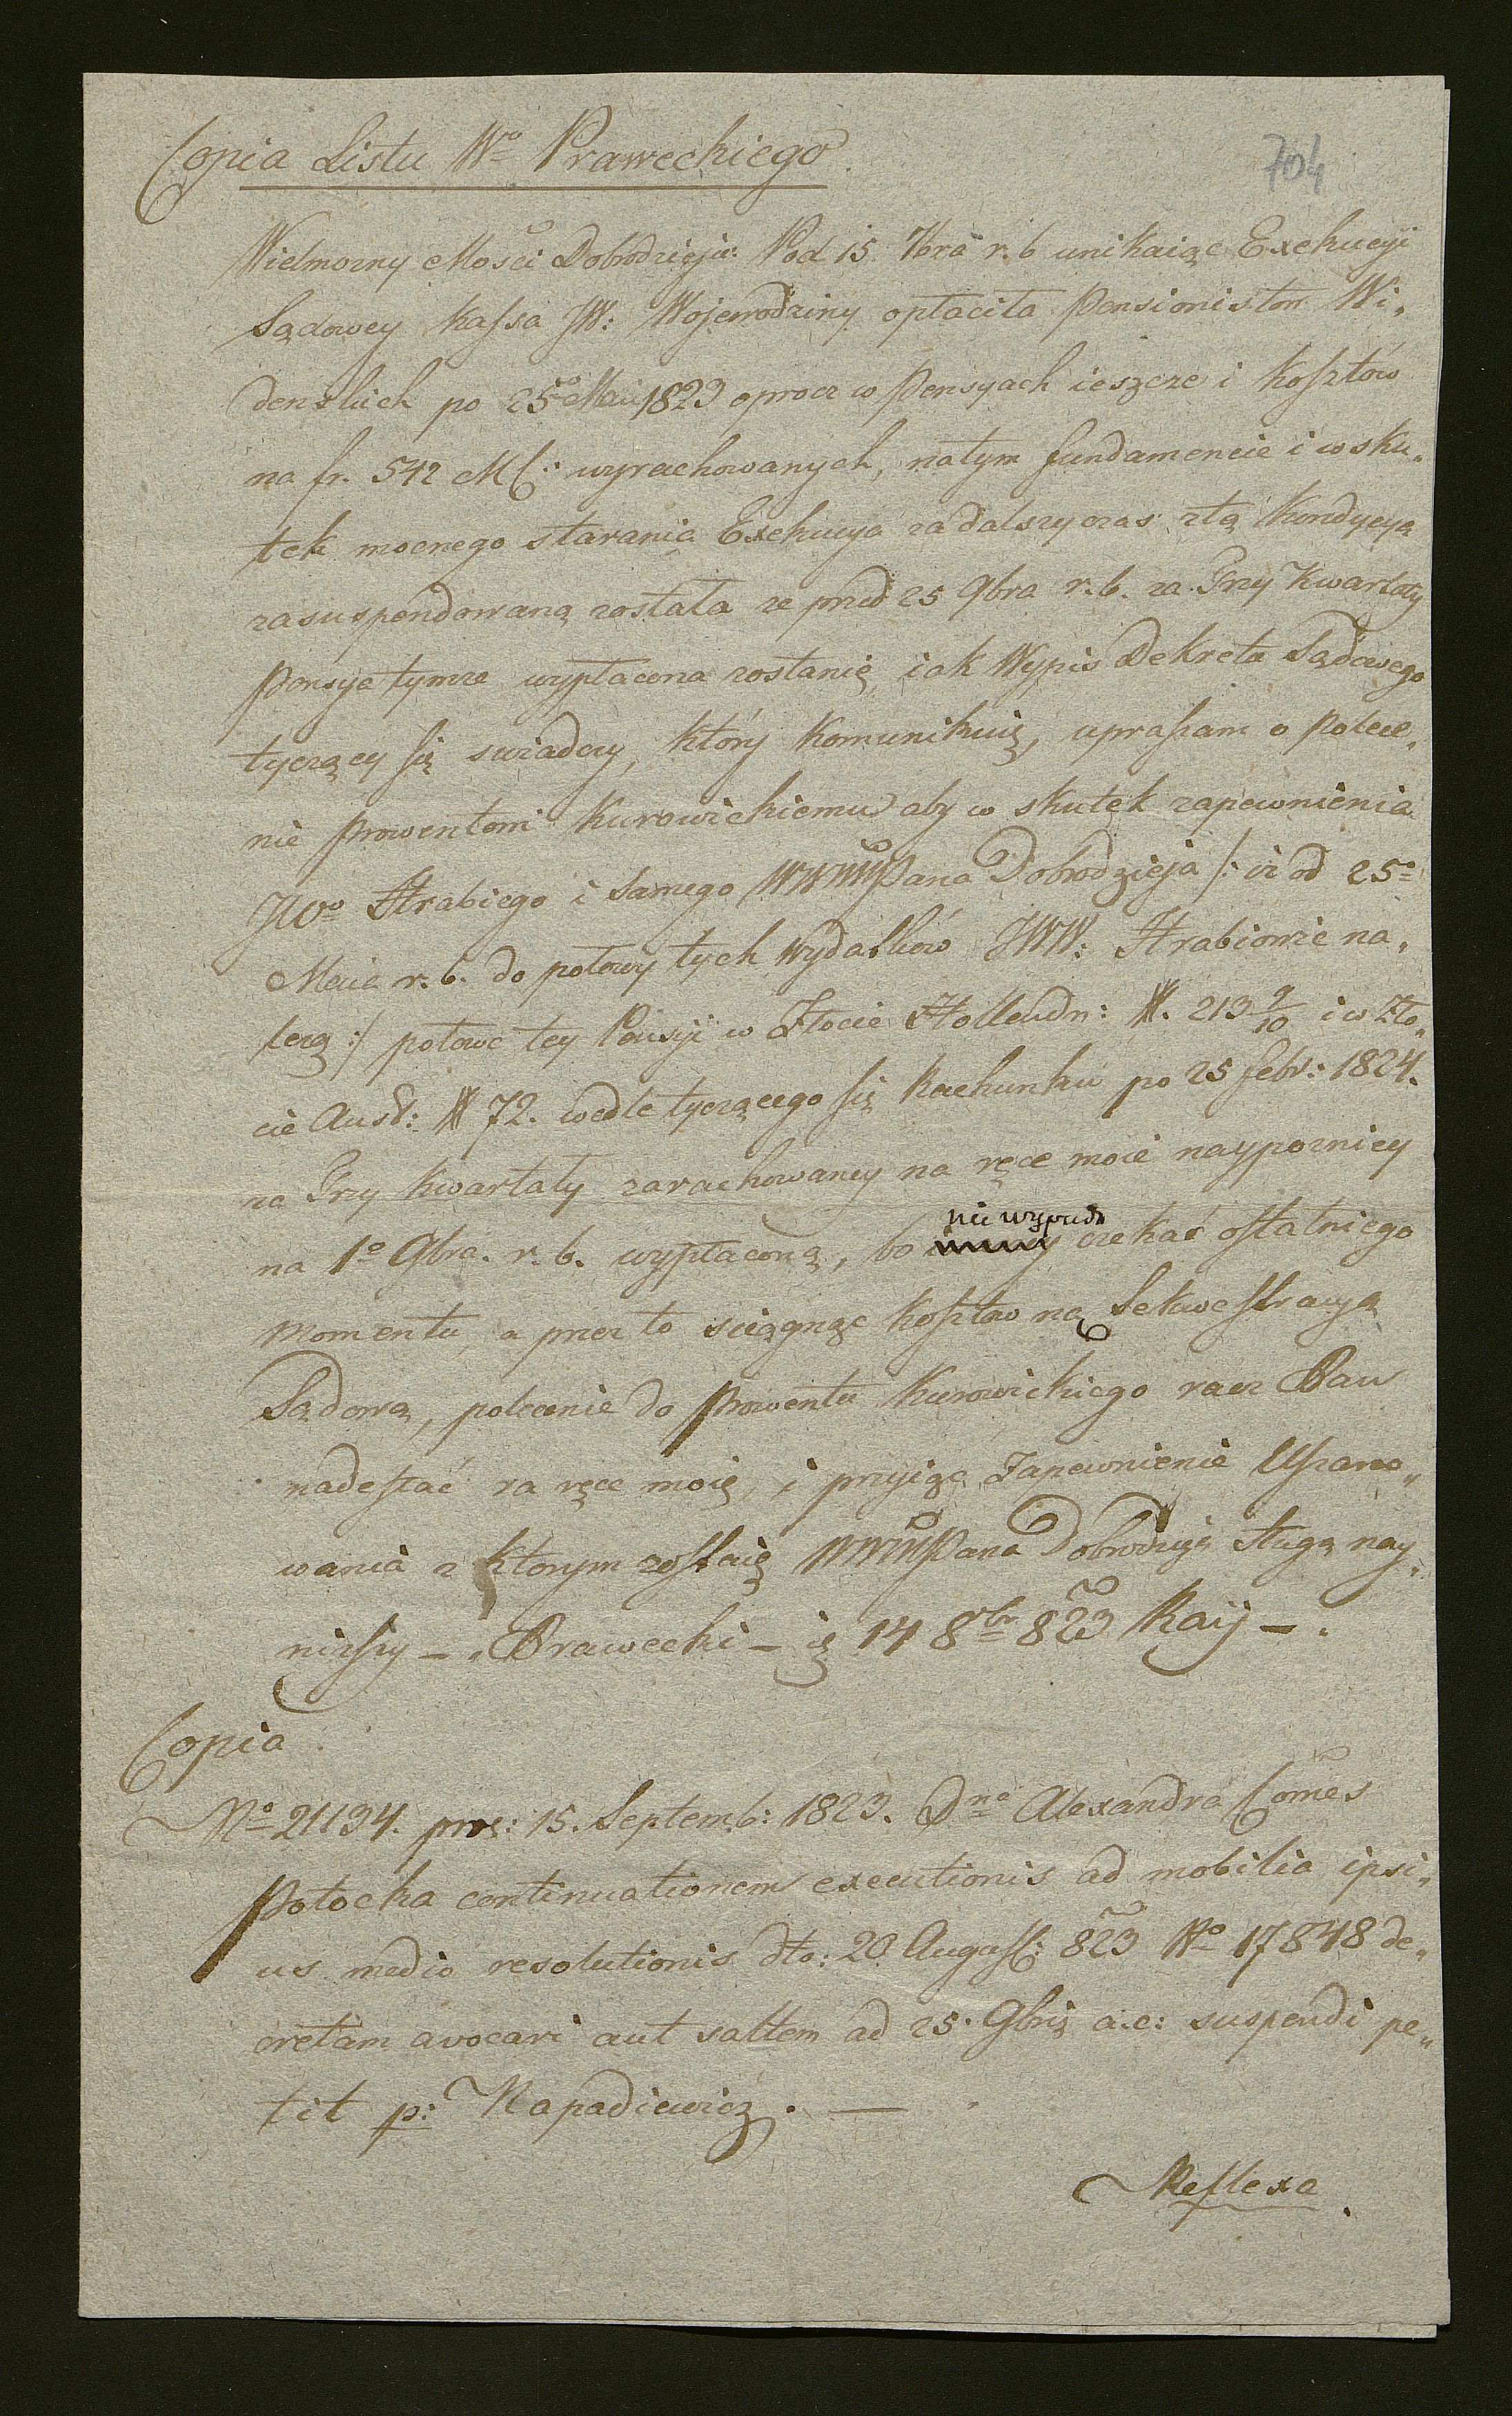 704
Copia Listu Wo Praweckiego.
Wielmozny Mosci Dobrodzieju. Pod 15 7bra r. b unikaiąc Exekucyi
Sądowey Kassa JW: Wojewodziny opłaciła Pensionistom Wi„
denskich po 25o Maii 1823 oprocz w Pensyach ieszcze i kosztów
na fr. 542 MC: wyrachowanych, na tym fundamencie i w sku„
tek mocnego starania Exekucya za dalszy czas z tą Kondycyą
zasuspendowaną została ze przed 25 9bra r. b. za Trzy Kwartały
Pensya tymze wypłacona zostanie, iak Wypis Dekretu Sądowego
tyczący się swiadczy, który Komunikuię, upraszam o Polece„
nie prowentowi Kurowickiemu aby w skutek zapewnienia
JWo Hrabiego i samego WWMPana Dobrodzieja /: iz od 25o
Maia r. b. do połowy tych wydatków JWW: Hrabiowie na„
lezą :/ połowe tey Pensyi w Złocie Hollendr: #. 213 9/10 i w Zło„
cie Aust: # 72. wedle tyczącego się Rachunku po 25 febr: 1824.
na Trzy kwartały zarachowaney na ręce moie naypozniey
na 1o 9bra. r. b. wypłaconą, bo
nie wypada
czekać ostatniego
momentu, a przez to sciągnąc kosztow na Sekwestracyą
Sądową, polecenie do Prowentu Kurowickiego racz Pan
nadesłać na ręce moie, i przyiąc Zapewnienie Uszano„
wania z ktorym zostaię WWMPana Dobrodzieja sługą nay„
nizszy – Prawecki – 14 8br 823 Raij –.
Copia.
No 21134. pres: 15. Septemb: 1823. Dna Alexandra Comes
Potocka continuationem executionis ad mobilia ipsi„
us medio resolutionis dto: 20 August: 823 No 17848 de„
cretam avocari aut saltem ad 25. 9bris a. c: suspendi pe„
tit p: Napadiewicz. —
Reflexa.